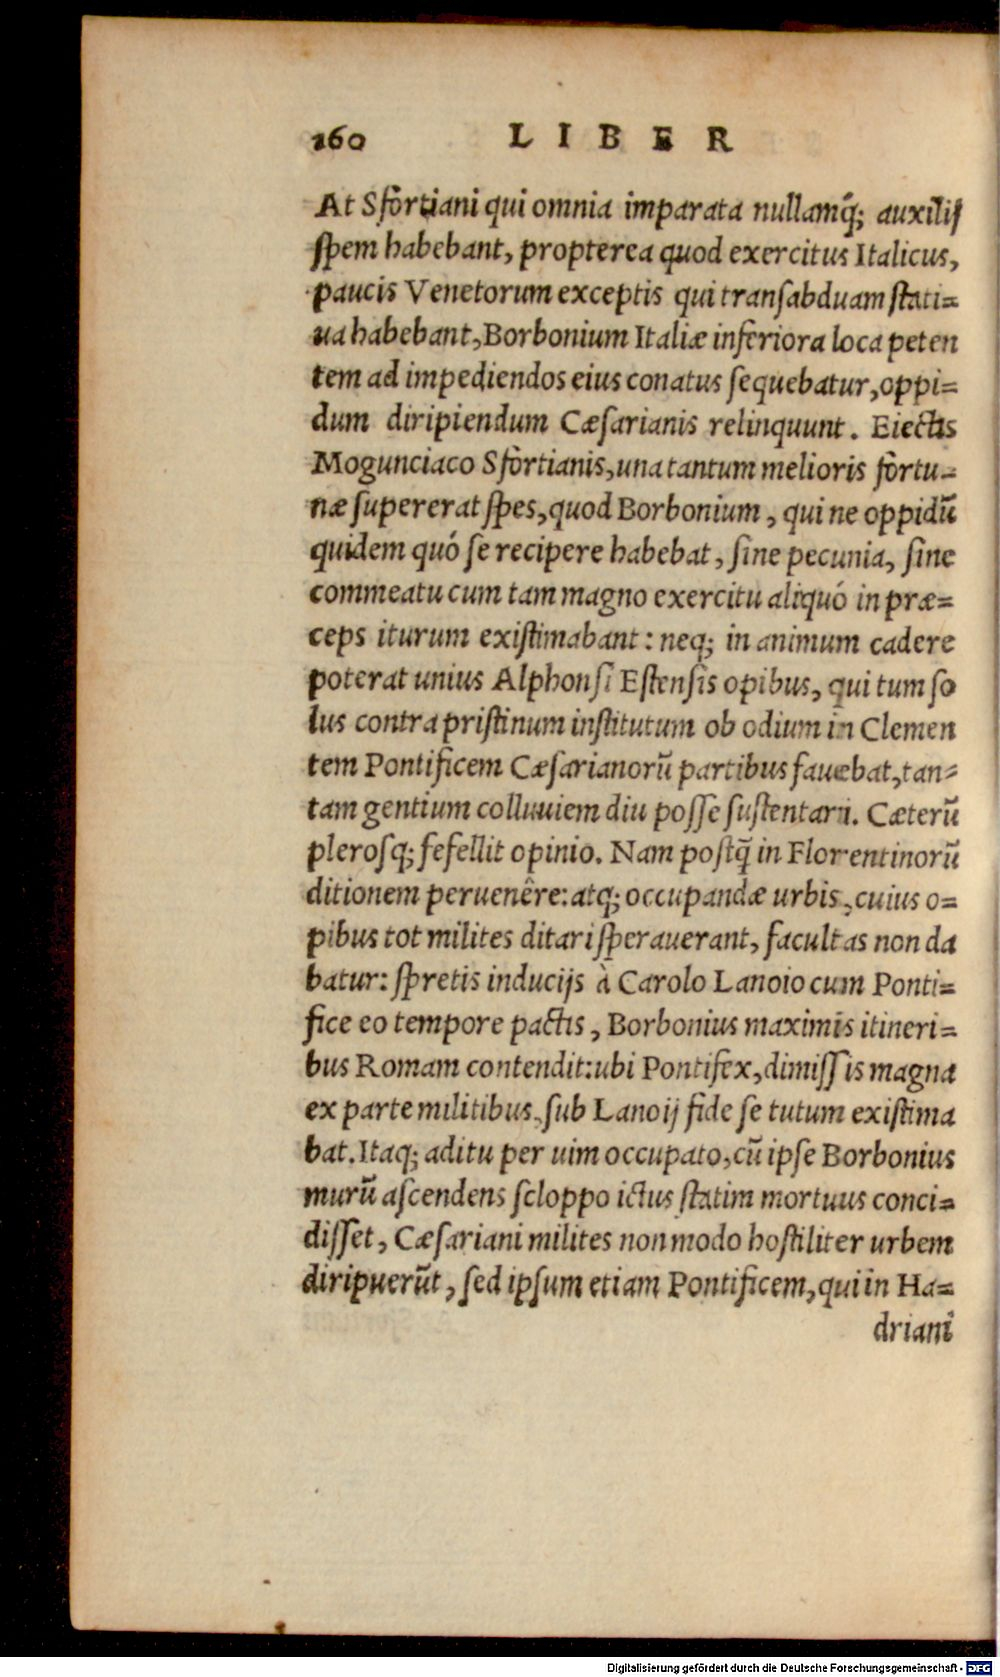 160 LIBER
At Sfortiani qui omnia imparata nullamq́; auxilij
ſpem habebant, propterea quod exercitus Italicus,
paucis Venetorum exceptis qui tranſabduam ſtati=
ua habebant, Borbonium Italiæ inferiora loca peten
tem ad impediendos eius conatus ſequebatur, oppi=
dum diripiendum Cæſarianis relinquunt. Eiectis
Mogunciaco Sfortianis, una tantum melioris fortu=
næ ſupererat ſpes, quod Borbonium, qui ne oppidũ
quidem quó ſe recipere habebat, ſine pecunia, ſine
commeatu cum tam magno exercitu aliquó in præ=
ceps iturum exiſtimabant: neq; in animum cadere
poterat unius Alphonſi Eſtenſis opibus, qui tum ſo
lus contra priſtinum inſtitutum ob odium in Clemen
tem Pontificem Cæſarianorũ partibus fauebat, tan=
tam gentium colluuiem diu poſſe ſuſtentari. Cæterũ
pleroſq; fefellit opinio. Nam poſtq̃ in Florentinorũ
ditionem peruenêre: atq; occupandæ urbis, cuius o=
pibus tot milites ditari ſperauerant, facultas non da
batur: ſpretis inducijs à Carolo Lanoio cum Ponti=
fice eo tempore pactis, Borbonius maximis itineri=
bus Romam contendit: ubi Pontifex, dimiſſis magna
ex parte militibus, ſub Lanoij fide ſe tutum exiſtima
bat. Itaq; aditu per uim occupato, cũ ipſe Borbonius
murũ aſcendens ſcloppo ictus ſtatim mortuus conci=
diſſet, Cæſariani milites non modo hoſtiliter urbem
diripuerũt, ſed ipſum etiam Pontificem, qui in Ha=
driani
Digitalisierung gefördert durch die Deutsche Forschungsgemeinschaft - DFG